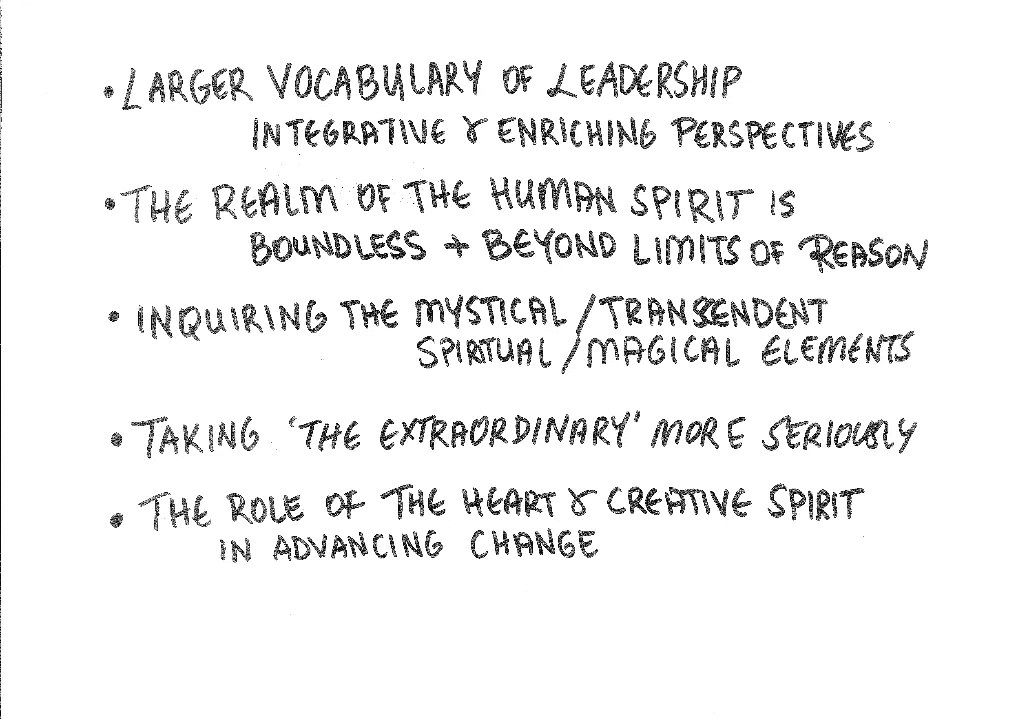 • LARGER VOCABULARY OF LEADERSHIP
INTEGRATIVE & ENRICHING PERSPECTIVES
• THE REALM OF THE HUMAN SPIRIT IS
BOUNDLESS + BEYOND LIMITS OF REASON
• INQUIRING THE MYSTICAL / TRANSCENDENT
SPIRTUAL / MAGICAL ELEMENTS
• TAKING 'THE EXTRAORDINARY' MORE SERIOUSLY
• THE ROLE OF THE HEART & CREATIVE SPIRIT
IN ADVANCING CHANGE